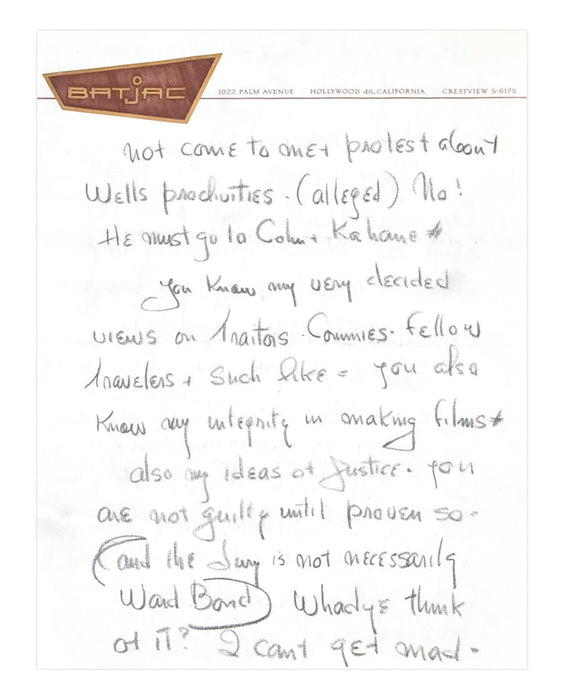 BATJAC
1022 PALM AVENUE · HOLLYWOOD 46, CALIFORNIA · CRESTVIEW 5-6175
not come to me + protest about
Wells proclivities. (alleged) No!
He must go to Cohn + Kahane
You know my very decided
views on Traitors. Commies. Fellow
Travelers + such like = you also
know my integrity in making films
also my ideas of Justice. you
are not guilty until proven so.
(and the Jury is not necessarily
Ward Bond) Whadye think
of it? I cant get mad.